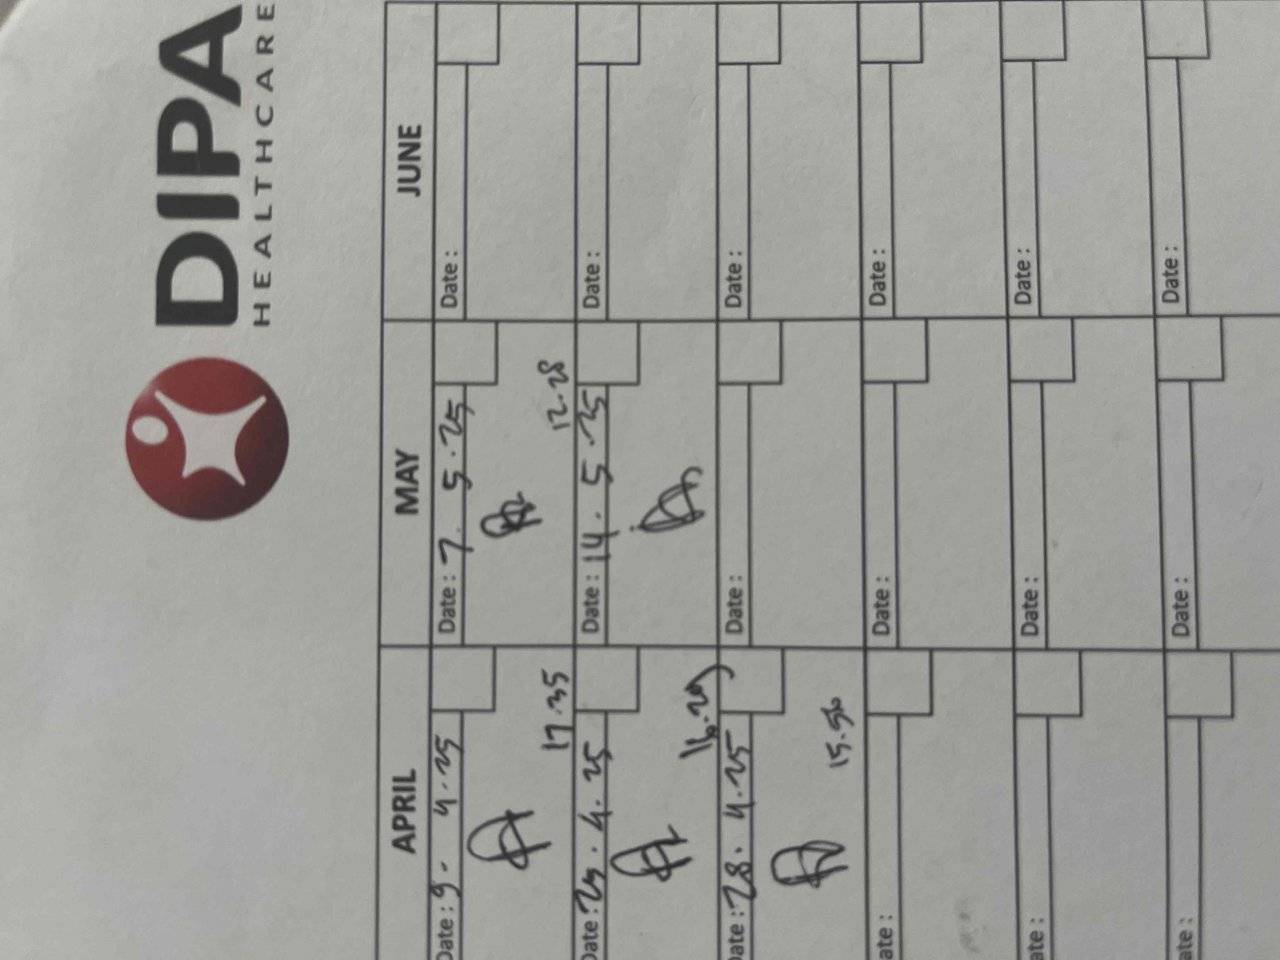 DIPA
HEALTHCARE
APRIL MAY JUNE
Date : 9. 4.25 Date : 7. 5.25 Date :
17.35 12.28
Date : 4.25 Date : 14. 5.25 Date :
Date : 28. 4.25 Date : Date :
15.56
ate : Date : Date :
ate : Date : Date :
ate : Date : Date :